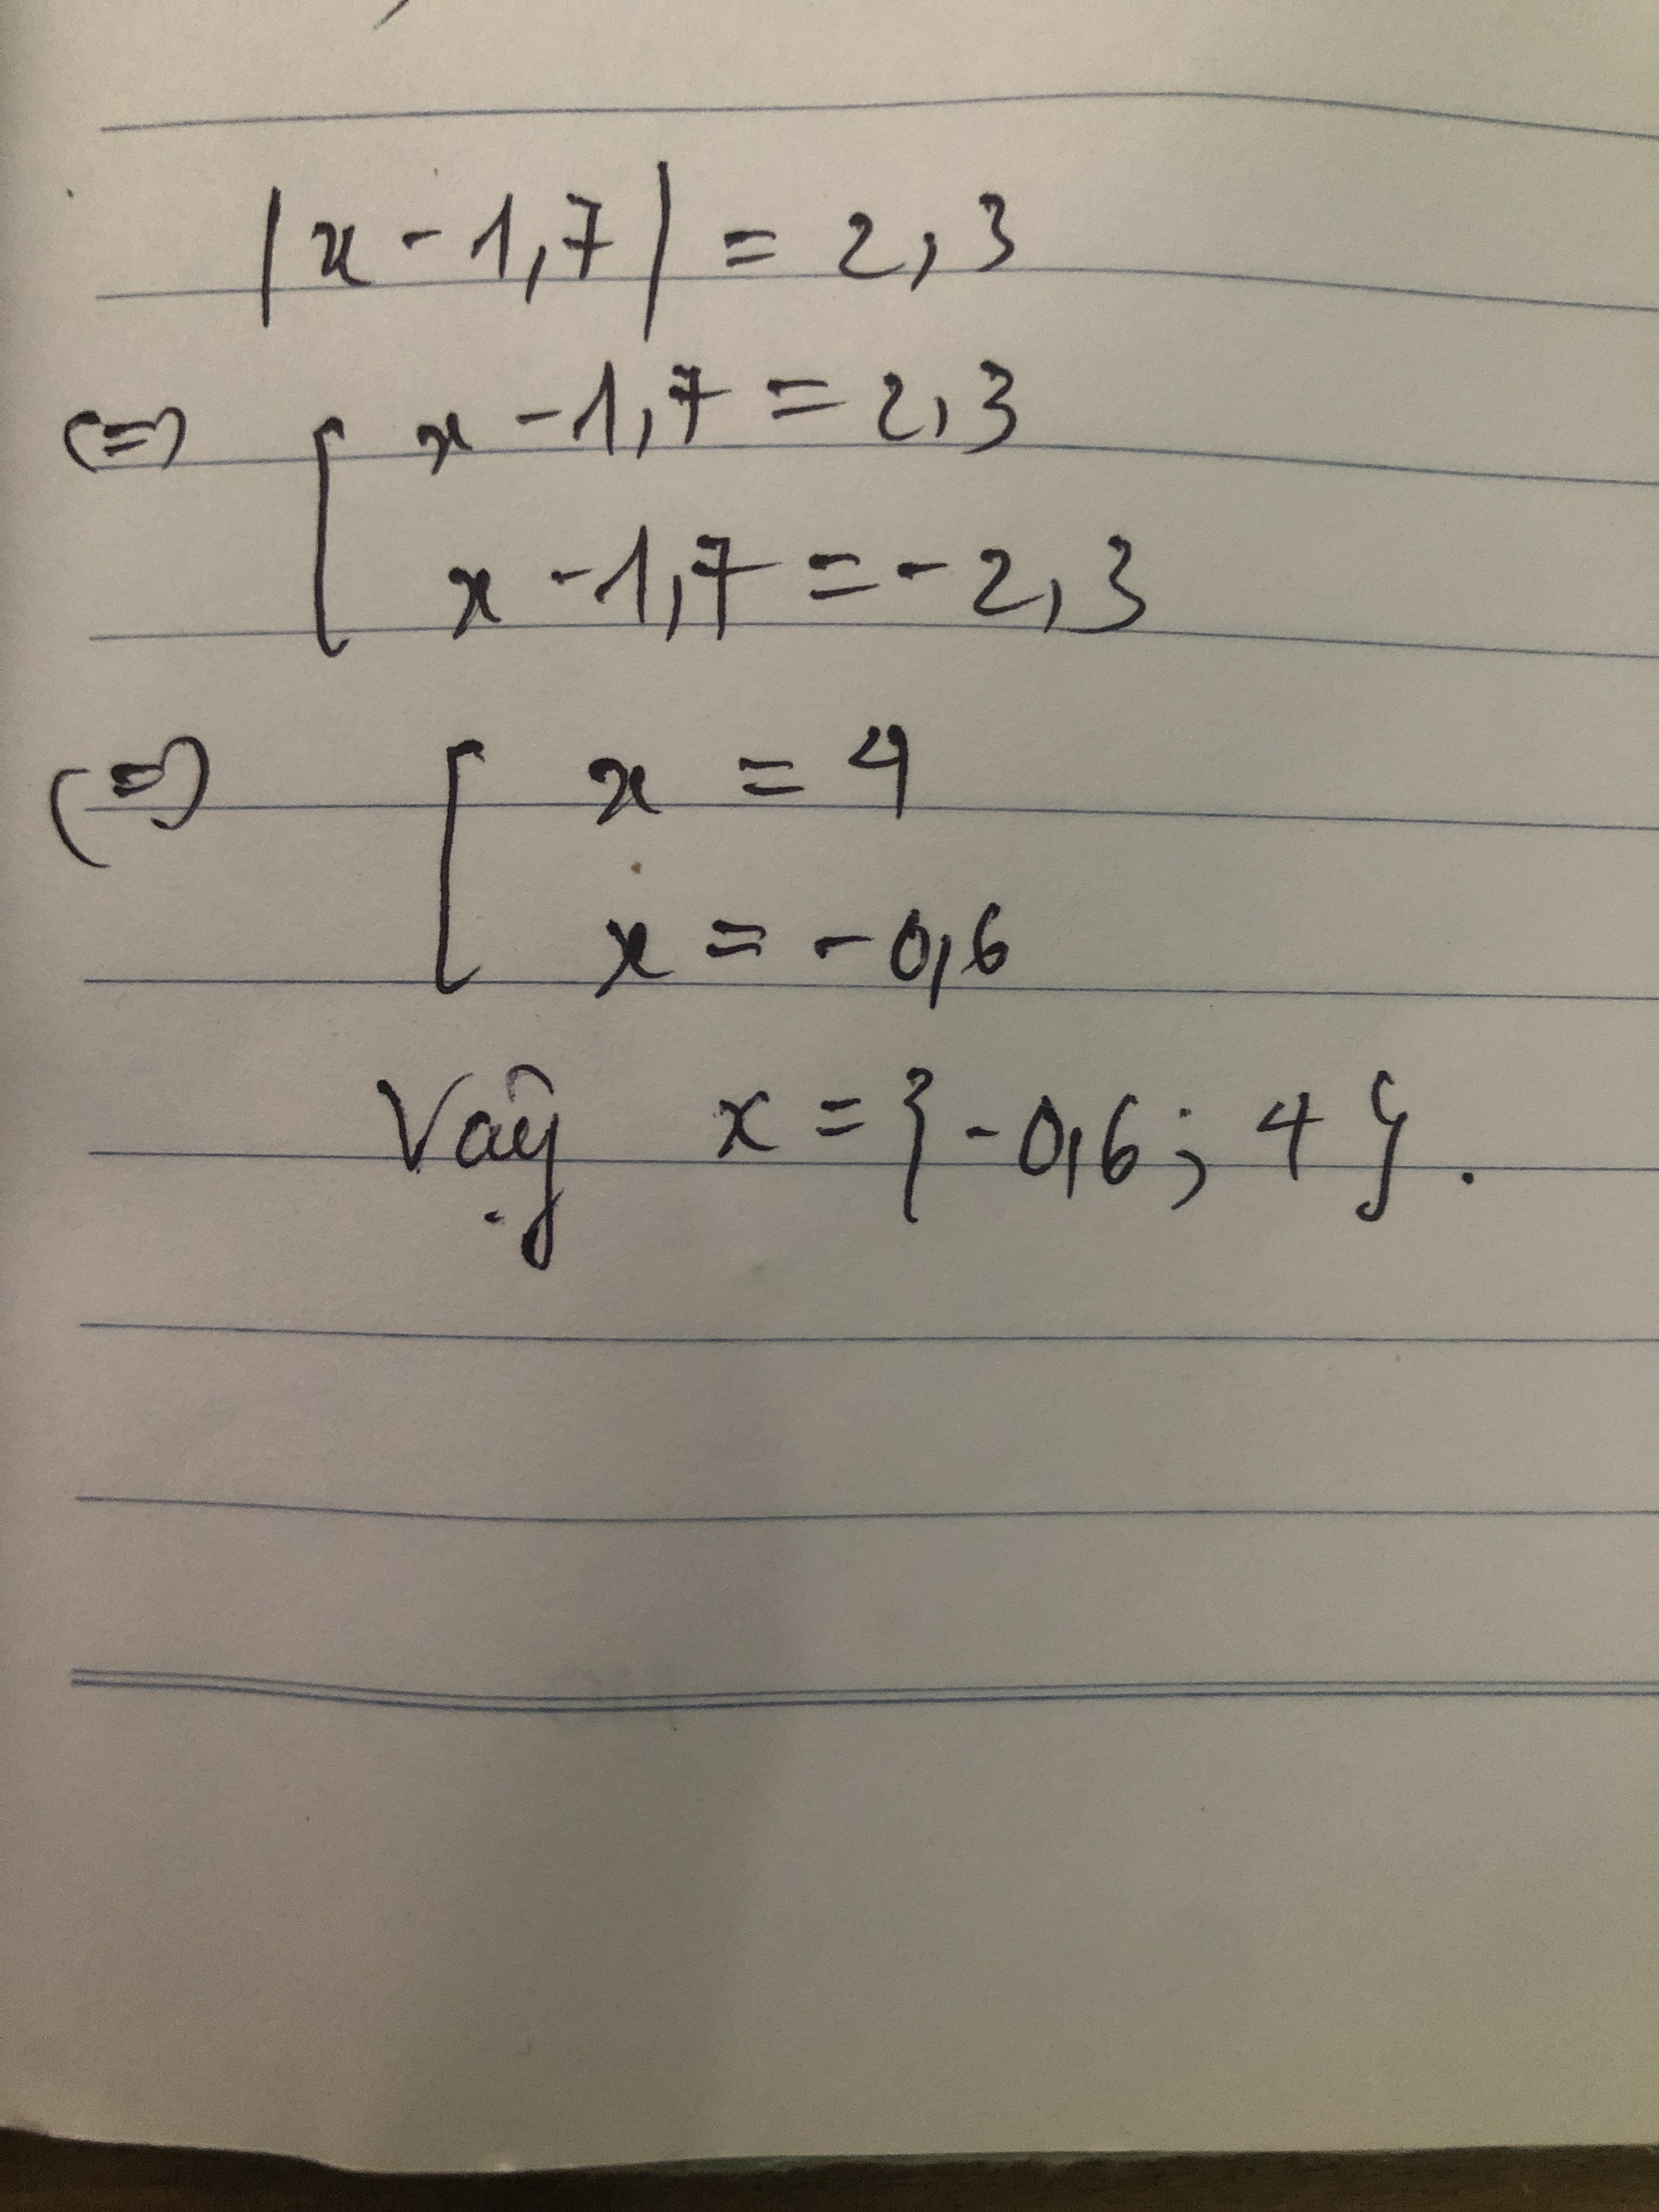 |x - 1,7| = 2,3
<=> [ x - 1,7 = 2,3
x - 1,7 = - 2,3
<=> [ x = 4
x = - 0,6
Vậy x = { - 0,6 ; 4 } .